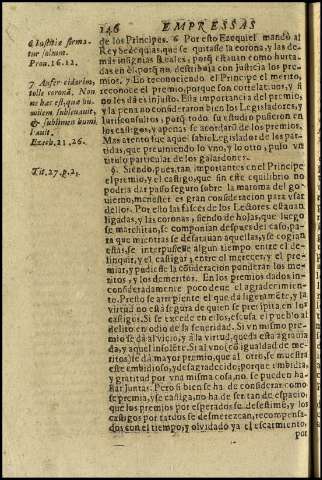 146 EMPRESSAS
6 Iustitia firma-
tur solium.
Prou. 16. 12.
7 Aufer cidarim,
tolle coronã. Non
ne hæc est, quæ hu
milem subleuauit,
& sublimem humi
liauit.
Ezech. 21. 26.
Tit. 27. p. 2.
de los Principes. 6 Por esto Ezequiel mandò al
Rey Sedequias, que se quitasse la corona, y las de-
mas insignias Reales, porq̃ estauan como hurta-
das en èl, porq̃ no distribuìa con justicia los pre-
mios. 7 En reconociendo el Principe el merito,
reconoce el premio, porque son correlatiuos, y si
no le dà es injusto. Esta importancia del premio,
y la pena no consideraron bien los Legisladores, y
Iurisconsultos, porq̃ todo su estudio pusieron en
los castigos, y apenas se acordarõ de los premios.
Mas atento fue aquel sabio Legislador de las par-
tidas, que preuiniendo lo vno, y lo otro, puso vn
titulo particular de los galardones.
§. Siendo, pues, tan importantes en el Principe
el premio, y el castigo, que sin este equilibrio no
podria dar passo seguro sobre la maroma del go-
uierno, menester es gran consideracion para vsar
dellos. Por esto las fasces de los Lictores estauan
ligadas, y las coronas, siendo de hojas, que luego
se marchitan, se componian despues del caso, pa-
ra que mientras se desatauan aquellas, y se cogian
estas, se interpusiesse algun tiempo entre el de-
linquir, y el castigar, entre el merecer, y el pre-
miar, y pudiesse la cõsideracion ponderar los me-
ritos, y los demeritos. En los premios dados in-
consideradamente poco deue el agradecimien-
to. Presto se arrepiente el que dà ligeramẽte, y la
virtud no està segura de quien se precipita en los
castigos. Si se excede en ellos, escusa el pueblo al
delito en odio de la seueridad. Si vn mismo pre-
mio se dà al vicio, y a la virtud, queda esta agrauia
da, y aquel insolẽte. Si al vno (cõ igualdad de me-
ritos) se dà mayor premio, que al otro, se muestra
este embidioso, y desagradecido; porque embidia,
y gratitud por vna misma cosa, no se pueden ha-
llar juntas. Pero si bien se ha de considerar como
se premia, y se castiga, no ha de ser tan de espacio,
que los premios por esperados se desestimen, y los
castigos por tardos se desmerezcan, recompensa-
dos con el tiempo, y oluidado ya el escarmiento,
por